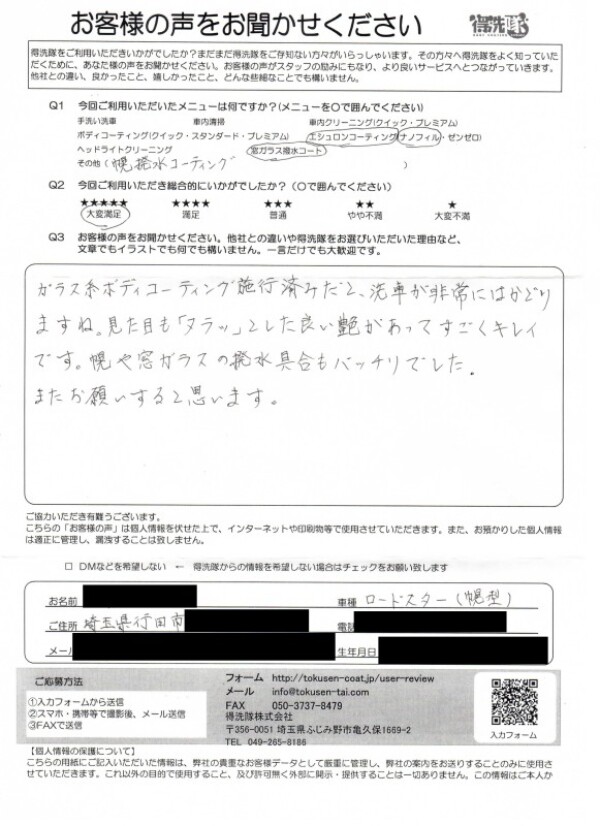 お客様の声をお聞かせください
得洗隊
得洗隊をご利用いただきいかがでしたか?まだまだ得洗隊をご存知ない方々がいらっしゃいます。その方々へ得洗隊をよく知っていた
だくために、あなた様の声をお聞かせください。お客様の声がスタッフの励みにもなり、より良いサービスへとつながっていきます。
他社との違い、良かったこと、嬉しかったこと、どんな些細なことでも構いません。
Q1 今回ご利用いただいたメニューは何ですか?(メニューを〇で囲んでください)
手洗い洗車 車内清掃 車内クリーニング(クイック・プレミアム)
ボディコーティング(クイック・スタンダード・プレミアム) エシュロンコーティング(ナノフィル・ゼンゼロ)
ヘッドライトクリーニング 窓ガラス撥水コート
その他(幌撥水コーティング )
Q2 今回ご利用いただき総合的にいかがでしたか?(〇で囲んでください)
★★★★★ ★★★★ ★★★ ★★ ★
大変満足 満足 普通 やや不満 大変不満
Q3 お客様の声をお聞かせください。他社との違いや得洗隊をお選びいただいた理由など、
文章でもイラストでも何でも構いません。一言だけでも大歓迎です。
ガラス系ボディコーティング施行済みだと、洗車が非常にはかどり
ますね。見た目も「ヌラッ」とした良い艶があってすごくキレイ
です。幌や窓ガラスの撥水具合もバッチリでした。
またお願いすると思います。
ご協力いただき有難うございます。
こちらの「お客様の声」は個人情報を伏せた上で、インターネットや印刷物等で使用させていただきます。また、お預かりした個人情報
は適正に管理し、漏洩することは致しません。
□ DMなどを希望しない ← 得洗隊からの情報を希望しない場合はチェックをお願い致します
お名前 車種 ロードスター(幌型)
ご住所 埼玉県行田市 電話
メール 生年月日
ご応募方法
①入力フォームから送信
②スマホ・携帯等で撮影後、メール送信
③FAXで送信
フォーム http://tokusen-coat.jp/user-review
メール info@tokusen-tai.com
FAX 050-3737-8479
得洗隊株式会社
〒356-0051 埼玉県ふじみ野市亀久保1669-2
TEL 049-265-8186
入力フォーム
【個人情報の保護について】
こちらの用紙にご記入いただいた情報は、弊社の貴重なお客様データとして厳重に管理し、弊社の案内をお送りすることのみに使用さ
せていただきます。これ以外の目的で使用すること、及び許可無く外部に開示・提供することは一切ありません。この情報はご本人か